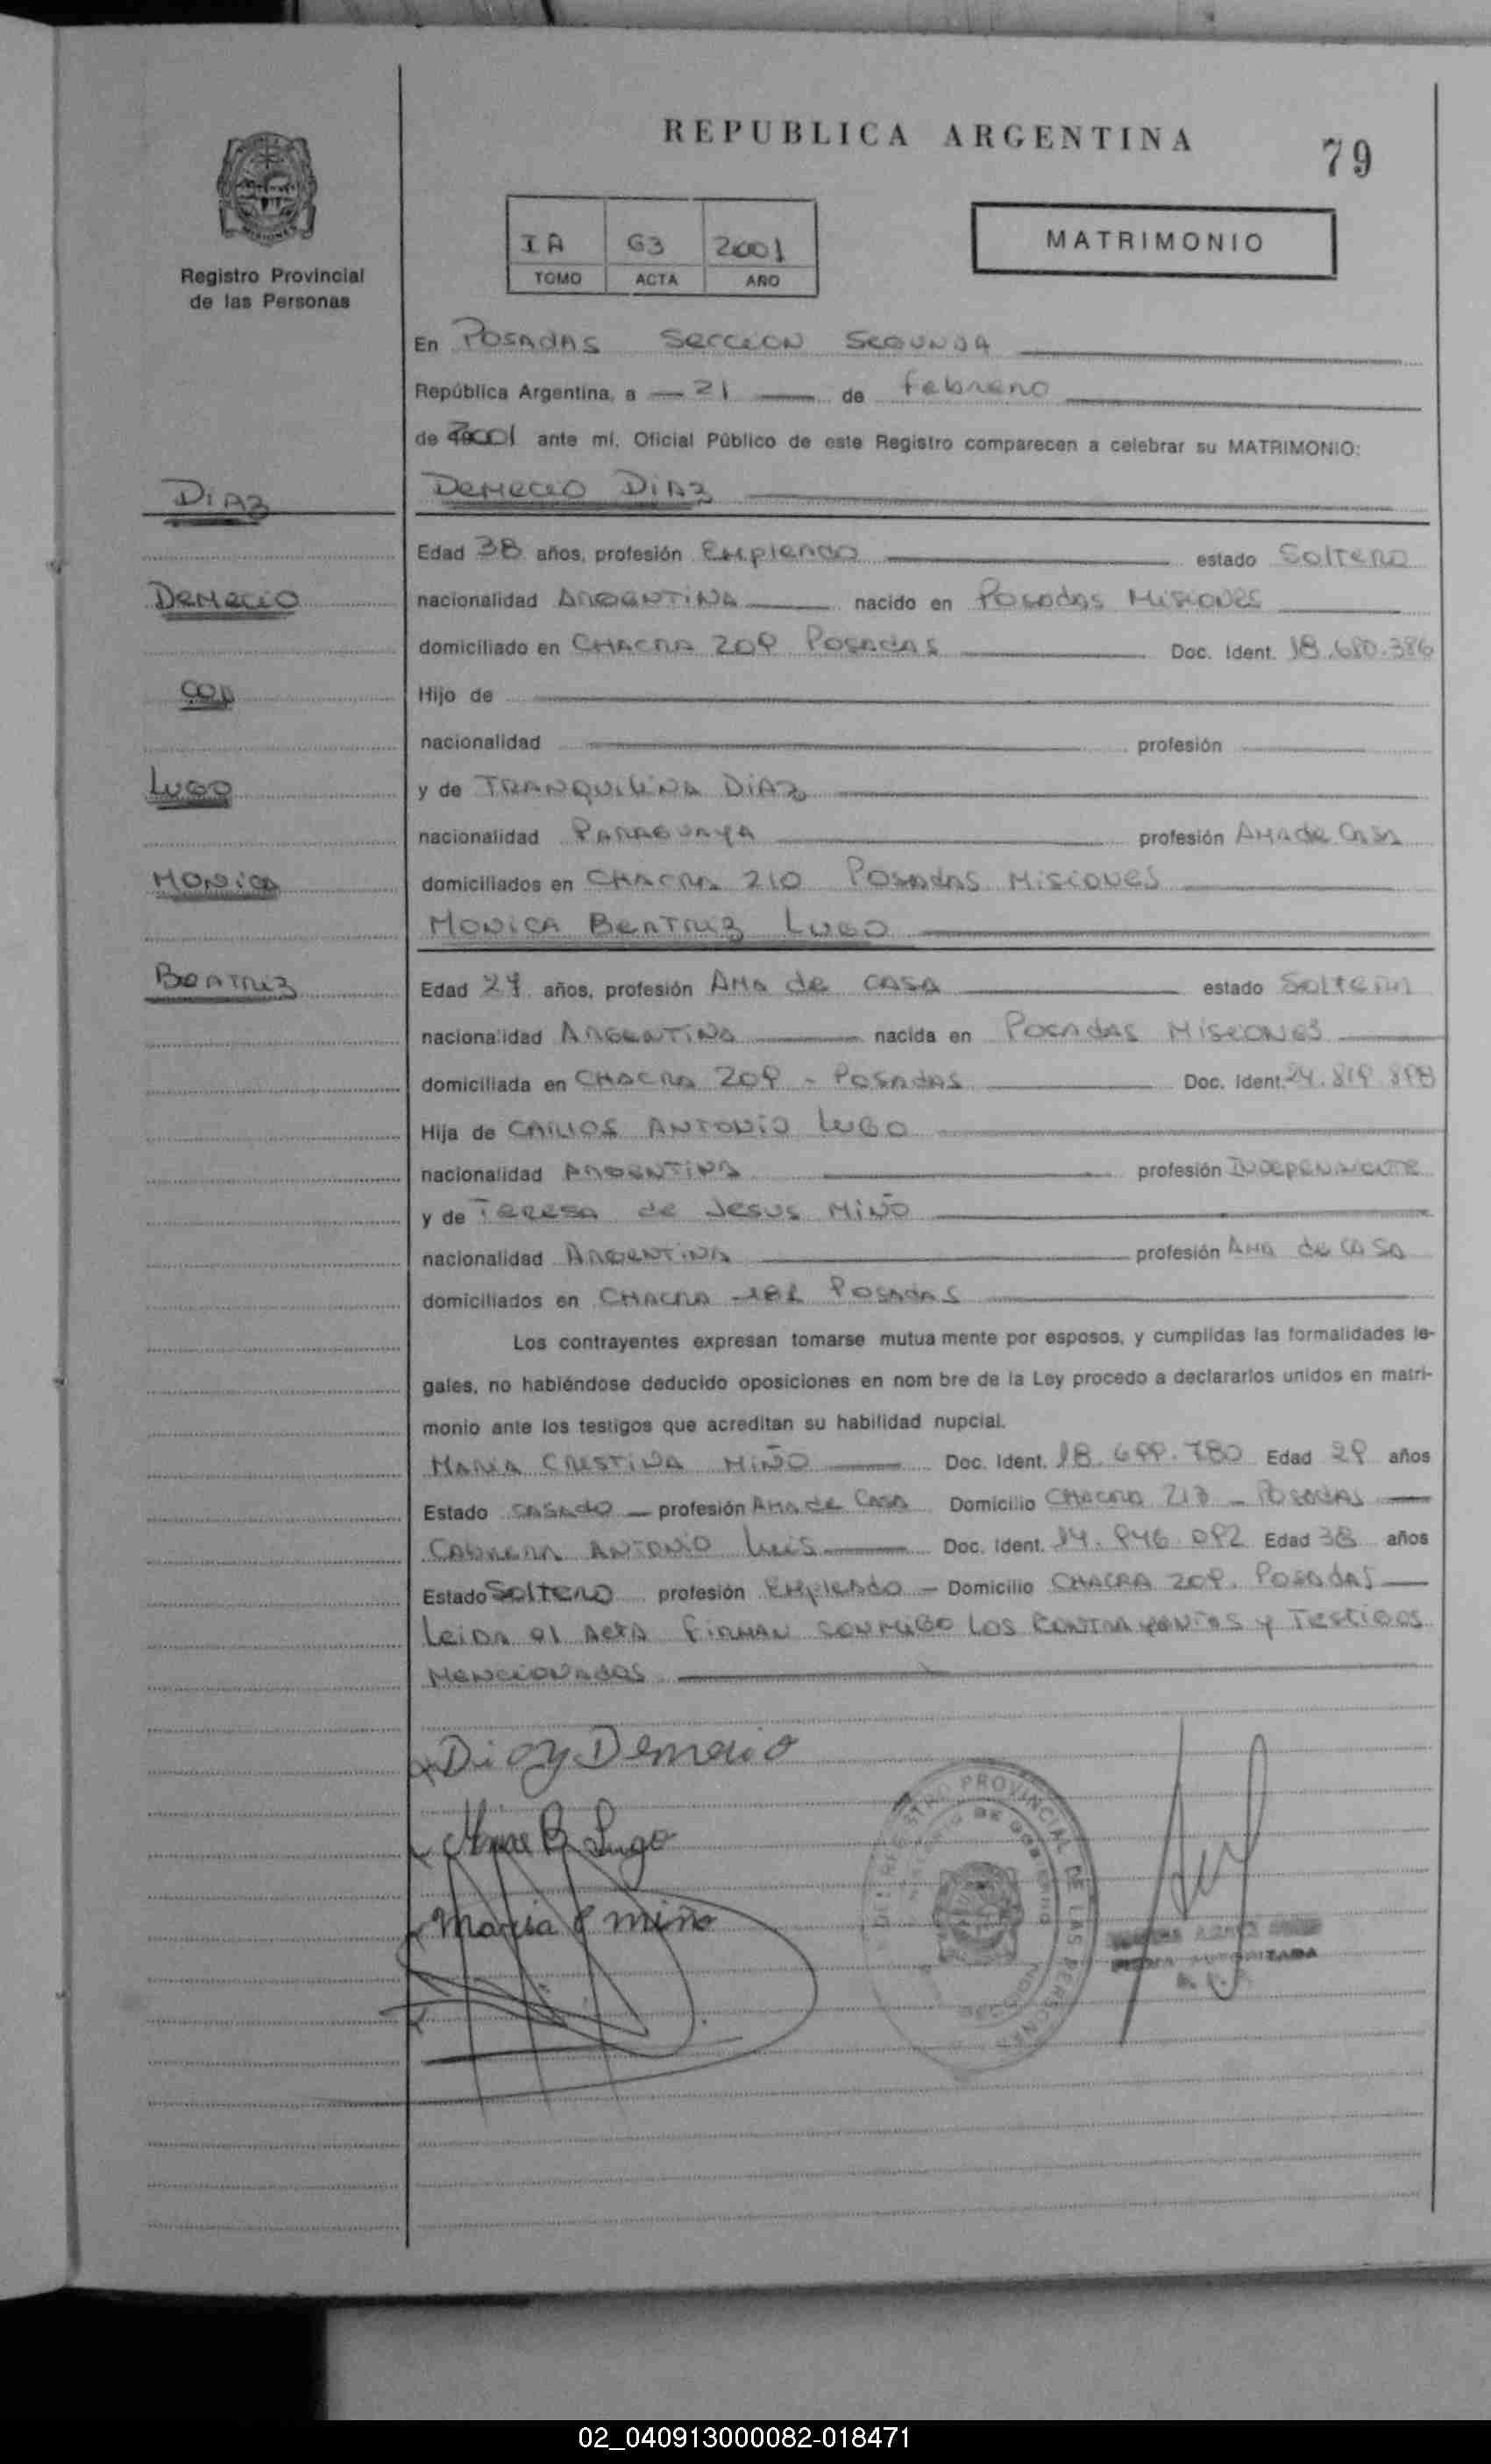 REPUBLICA ARGENTINA
79
Registro Provincial
de las Personas
IA 63 2001
TOMO ACTA AÑO
MATRIMONIO
En POSADAS SECCION SEGUNDA
República Argentina, a 21 de Febrero
de 2001 ante mí, Oficial Público de este Registro comparecen a celebrar su MATRIMONIO:
DIAZ
DEMECIO DIAZ
Edad 38 años, profesión Empleado estado Soltero
DEMECIO
nacionalidad ARGENTINA nacido en Posadas Misiones
domiciliado en CHACRA 209 POSADAS Doc. Ident. 18.680.386
CON
Hijo de
nacionalidad profesión
LUGO
y de TRANQUILINA DIAZ
nacionalidad PARAGUAYA profesión AMA de CASA
MONICA
domiciliados en CHACRA 210 POSADAS MISIONES
MONICA BEATRIZ LUGO
BEATRIZ
Edad años, profesión AMA de CASA estado SOLTERA
nacionalidad ARGENTINA nacida en POSADAS MISIONES
domiciliada en CHACRA 209 - POSADAS Doc. Ident.
Hija de CARLOS ANTONIO LUGO
nacionalidad ARGENTINA profesión INDEPENDIENTE
y de TERESA de JESUS MIÑO
nacionalidad ARGENTINA profesión AMA de CASA
domiciliados en CHACRA 181 POSADAS
Los contrayentes expresan tomarse mutua mente por esposos, y cumplidas las formalidades le-
gales, no habiéndose deducido oposiciones en nom bre de la Ley procedo a declararlos unidos en matri-
monio ante los testigos que acreditan su habilidad nupcial.
MARIA CRISTINA MIÑO Doc. Ident. 18.699.780 Edad 29 años
Estado CASADO profesión AMA de CASA Domicilio CHACRA POSADAS
CABRERA ANTONIO Luis Doc. Ident. 14.946.092 Edad 38 años
Estado SOLTERO profesión EMPLEADO Domicilio CHACRA 209. POSADAS
LEIDA el ACTA FIRMAN CONMIGO LOS CONTRAYENTES y TESTIGOS
MENCIONADOS
Diaz Demecio
B. Lugo
Maria C miño
REGISTRO PROVINCIAL DE LAS PERSONAS
FIRMA AUTORIZADA
02_040913000082-018471